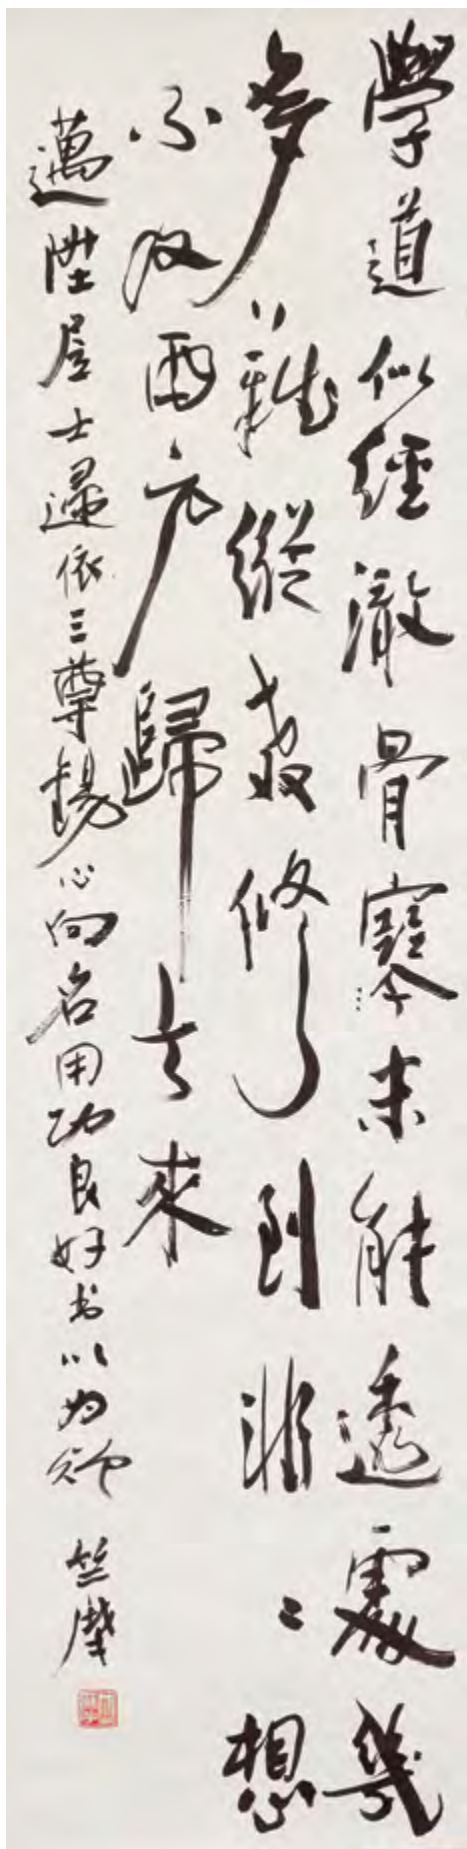 學道似經澈骨寒未能透處幾
多難縱教修到非〻想
不及西方歸去來
邁陞居士依三尊心向名用功良好书以为 竺摩